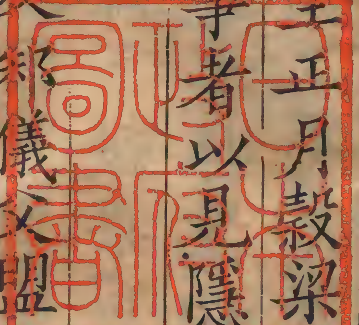 王正月穀梁
事者以見隱
及邾儀父盟
圖書